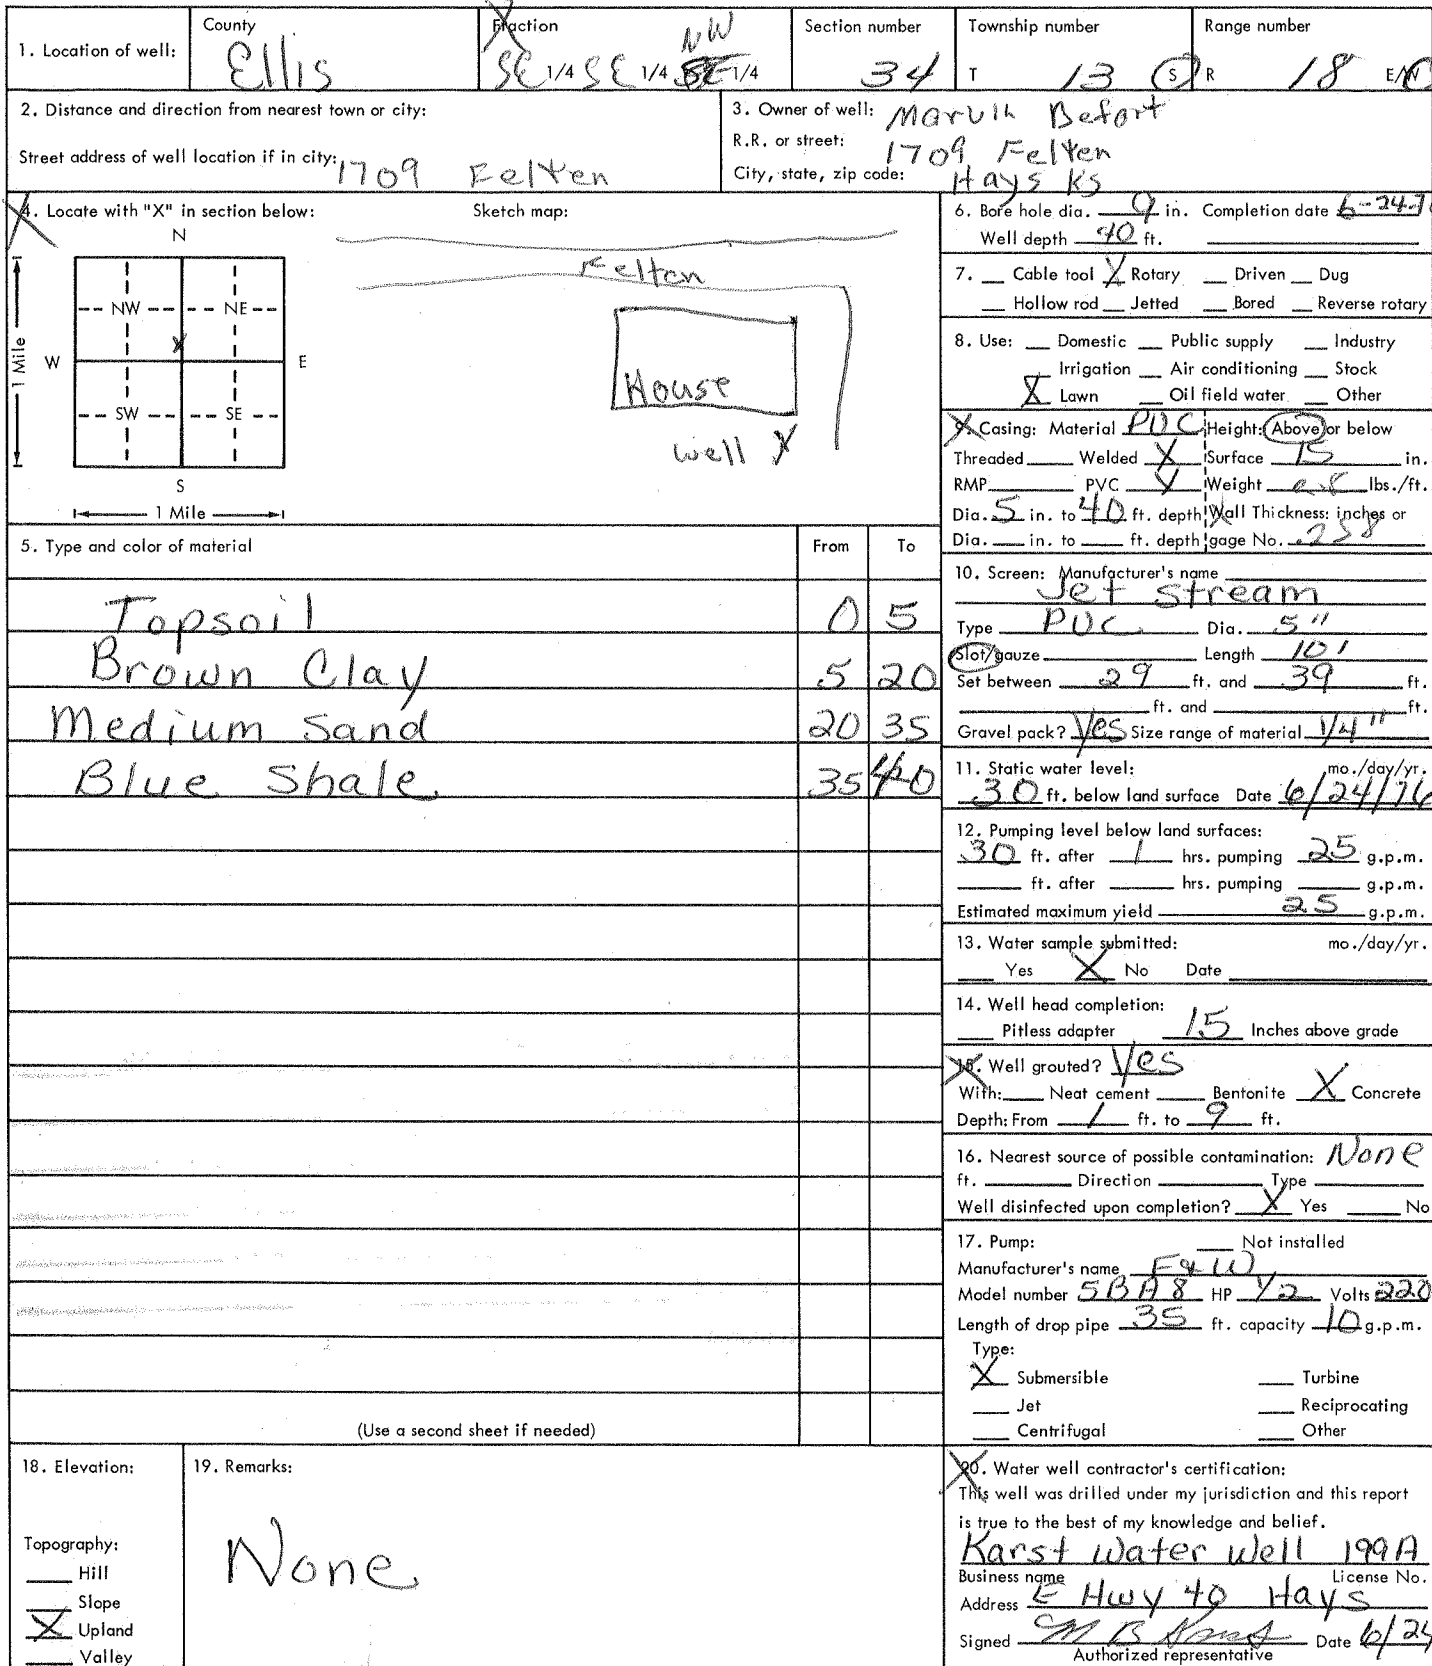 County Fraction Section number Township number Range number
NW
1. Location of well: Ellis SE 1/4 SE 1/4 SE 1/4 34 T 13 S R 18 E/W
2. Distance and direction from nearest town or city:
Street address of well location if in city: 1709 Felten
3. Owner of well: Marvin Befort
R.R. or street: 1709 Felten
City, state, zip code: Hays Ks
4. Locate with "X" in section below: Sketch map:
N
NW NE
W E
SW SE
S
1 Mile
1 Mile
X
Felten
House
well X
5. Type and color of material From To
Topsoil 0 5
Brown Clay 5 20
Medium Sand 20 35
Blue Shale 35 40
(Use a second sheet if needed)
6. Bore hole dia. 9 in. Completion date 6-24-7
Well depth 40 ft.
7. __ Cable tool X Rotary __ Driven __ Dug
__ Hollow rod __ Jetted __ Bored __ Reverse rotary
8. Use: __ Domestic __ Public supply __ Industry
__ Irrigation __ Air conditioning __ Stock
X Lawn __ Oil field water __ Other
9. Casing: Material PVC Height: Above or below
Threaded __ Welded X Surface 15 in.
RMP __ PVC X Weight __ lbs./ft.
Dia. 5 in. to 40 ft. depth Wall Thickness: inches or
Dia. __ in. to __ ft. depth gage No. .258
10. Screen: Manufacturer's name
Jet Stream
Type PVC Dia. 5"
Slot/gauze __ Length 10'
Set between 29 ft. and 39 ft.
__ ft. and __ ft.
Gravel pack? Yes Size range of material 1/4"
11. Static water level: mo./day/yr.
30 ft. below land surface Date 6/24/76
12. Pumping level below land surfaces:
30 ft. after 1 hrs. pumping 25 g.p.m.
__ ft. after __ hrs. pumping __ g.p.m.
Estimated maximum yield 25 g.p.m.
13. Water sample submitted: mo./day/yr.
__ Yes X No Date __
14. Well head completion:
__ Pitless adapter 15 Inches above grade
15. Well grouted? Yes
With: __ Neat cement __ Bentonite X Concrete
Depth: From 1 ft. to 9 ft.
16. Nearest source of possible contamination: None
ft. __ Direction __ Type __
Well disinfected upon completion? X Yes __ No
17. Pump: __ Not installed
Manufacturer's name F & W
Model number 5BA8 HP 1/2 Volts 220
Length of drop pipe 35 ft. capacity 10 g.p.m.
Type:
X Submersible __ Turbine
__ Jet __ Reciprocating
__ Centrifugal __ Other
18. Elevation:
Topography:
__ Hill
__ Slope
X Upland
__ Valley
19. Remarks:
None
20. Water well contractor's certification:
This well was drilled under my jurisdiction and this report
is true to the best of my knowledge and belief.
Karst Water Well 199A
Business name License No.
Address E Hwy 40 Hays
Signed M B Karst Date 6/24
Authorized representative